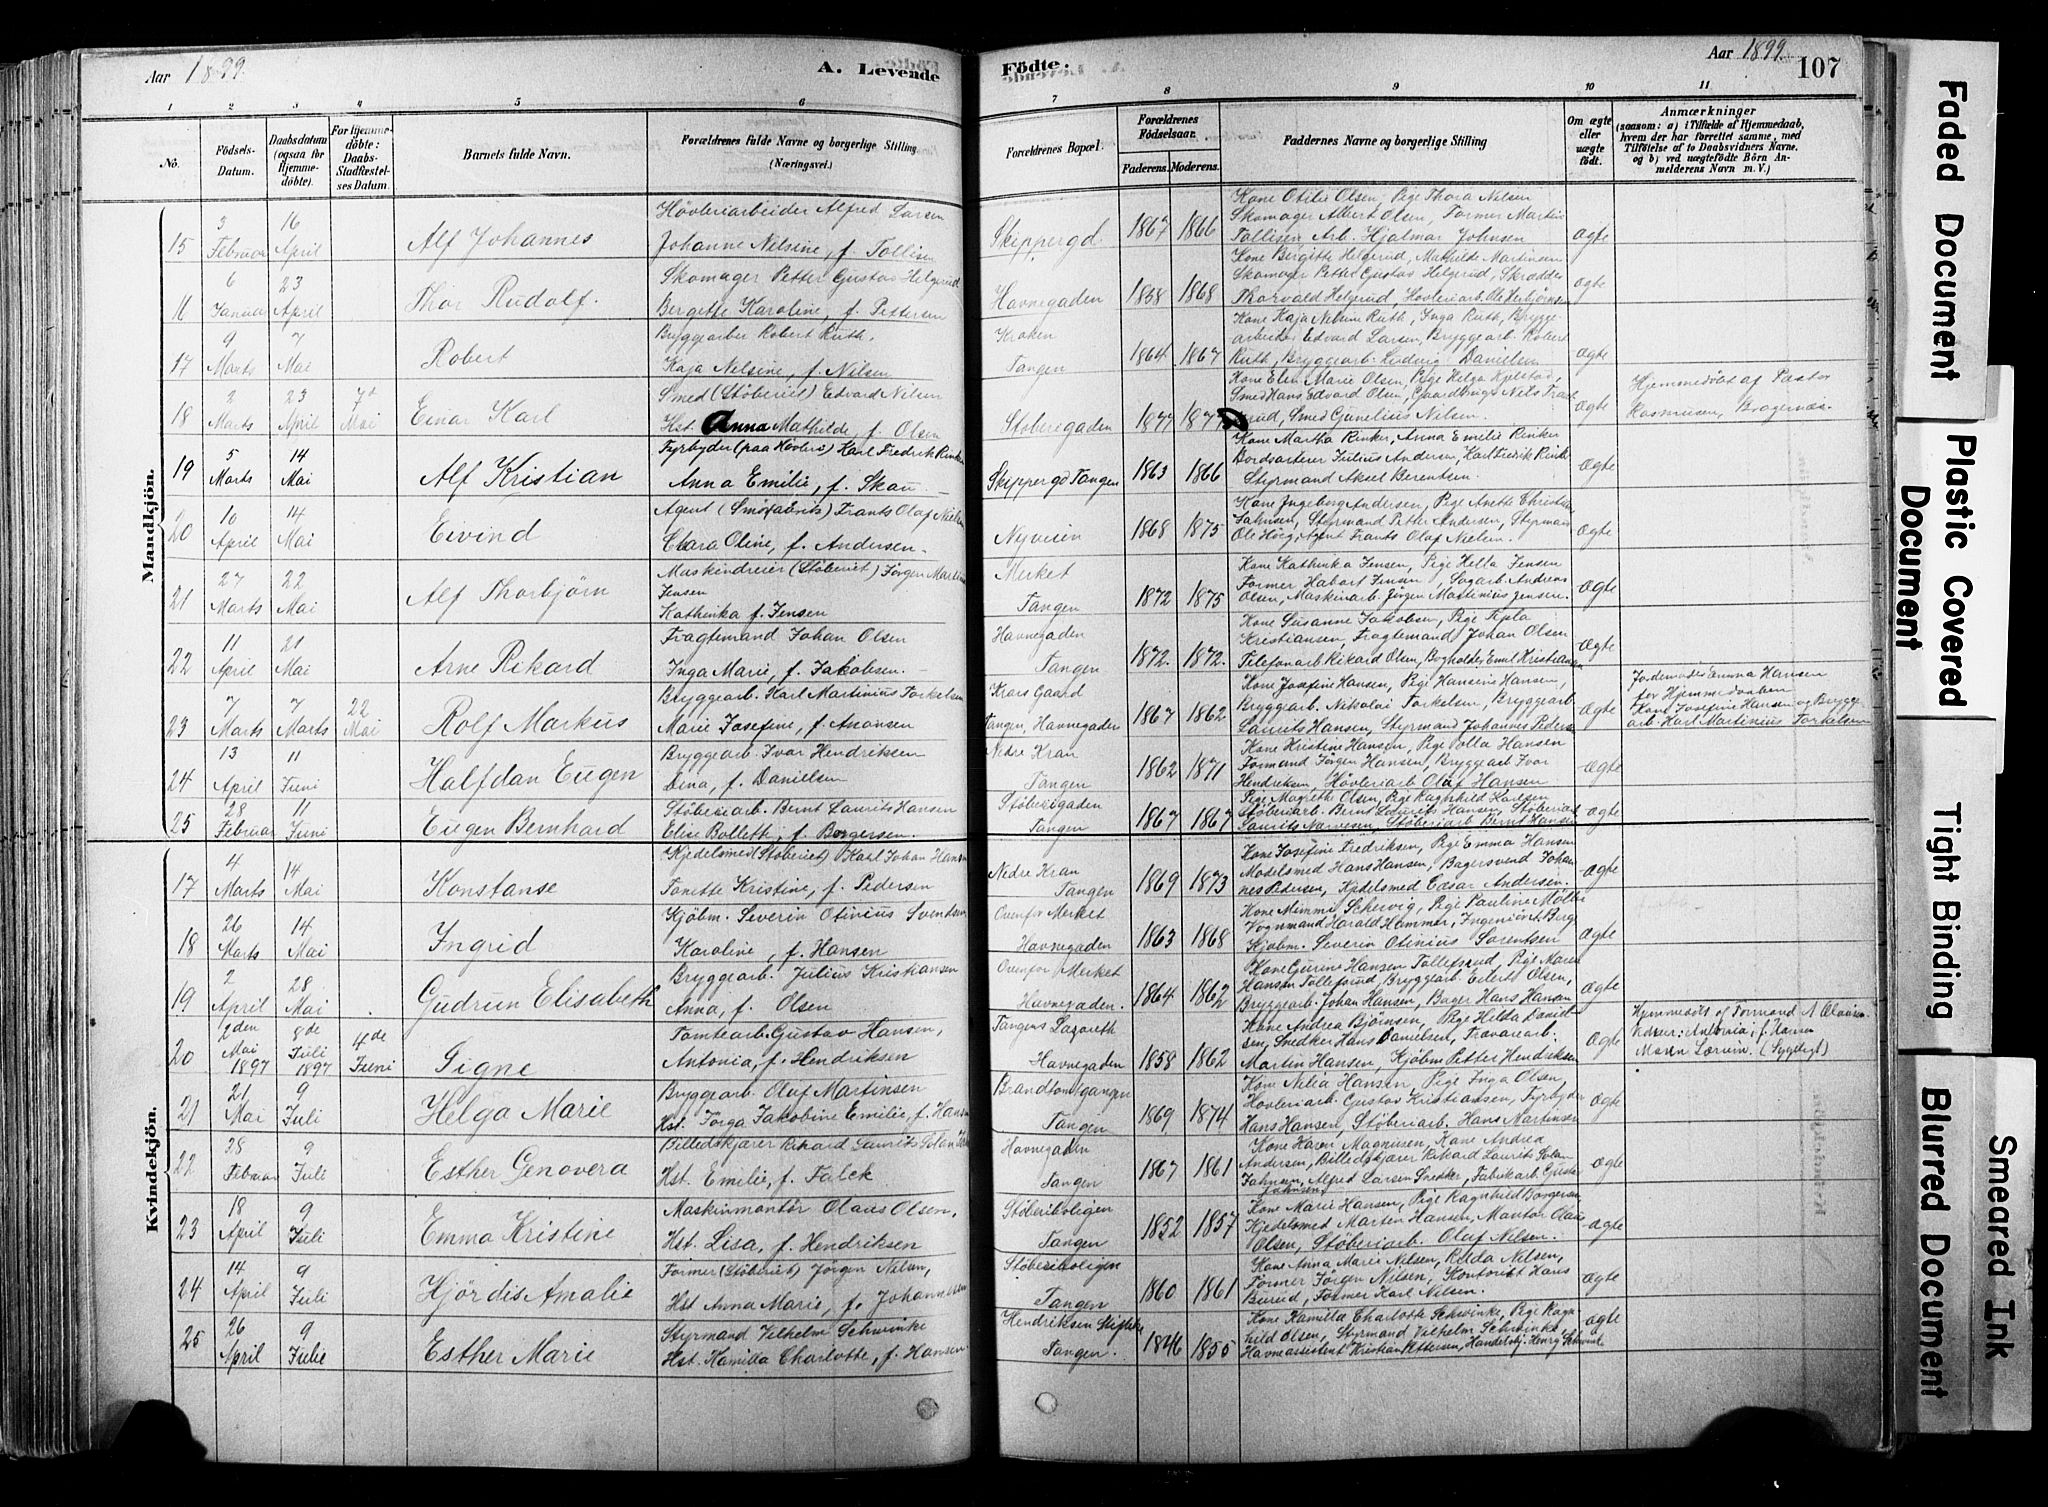 Aar 1899.
A. Levende
Födte.
Aar 1899.
107
1 2 3 4 5 6 7 8 9 10 11
No.
Födsels-Datum.
Daabsdatum (ogsaa for Hjemme-döbte).
For Hjemme-döbte: Daabs-Stadfæstel-ses Datum.
Barnets fulde Navn.
Forældrenes fulde Navne og borgerlige Stilling. (Næringsvei.)
Forældrenes Bopæl.
Forældrenes Födselsaar.
Faderens. Moderens.
Faddernes Navne og borgerlige Stilling
Om ægte eller uægte födt.
Anmærkninger
(saasom: a) i Tilfælde af Hjemmedaab, hvem der har forrettet samme, med Tilföielse af to Daabsvidners Navne, og b) ved uægtefödte Börn An-melderens Navn m. V.)
Mandkjön.
15 3 Februar 16 April Alf Johannes
Hövleriarbeider Alfred Larsen
Johanne Nilsine, f. Tollisen
Skippergd. 1867 1866
Kone Otilie Olsen, Pige Thora Nilsen
Skomager Albert Olsen, Former Martin
Tollisen, Arb. Hjalmar Johnsen
Ægte
16 6 Januar 23 April Thor Rudolf.
Skomager Petter Gustav Helgerud
Bergette Karoline, f. Pettersen
Havnegaden 1858 1868
Kone Bergitte Helgerud, Mathilde Martinsen
Skomager Petter Gustav Helgerud, Skrædder
Thorvald Helgerud, Hövleriarb. Ole Herbjörnsen
Ægte
17 9 Marts 7 Mai Robert
Bryggearber Robert Ruth,
Kaja Nilsine, f. Nilsen
Kroken
Tangen 1864 1867
Kone Kaja Nilsine Ruth, Inga Ruth, Brygge-
arbeider Edvard Larsen, Bryggearb. Robert
Ruth, Bryggearb. Ludvig Danielsen
Ægte
18 2 Marts 23 April 7d Mai Einar Karl
Smed (Stöberiet) Edvard Nilsen
Hst. Anna Mathilde, f. Olsen
Stöberigaden 1877 1877
Kone Elen Marie Olsen, Pige Helga Kjelstad,
Smed Hans Edvard Olsen, Gaardbruger Nils Trane
rud, Smed Gunelius Nilsen.
Ægte
Hjemmedöbt af Pastor
Rasmusen, Bragernæs.
19 5 Marts 14 Mai Alf Kristian
Fyrbyder (paa Hövleri) Karl Fredrik Rinker
Anna Emilie, f. Skau
Skippergd Tangen 1863 1866
Kone Martha Rinker, Anna Emilie Rinker
Bordsorterer Julius Andersen, Karl Fredrik Rinker
Styrmand Aksel Berentsen.
Ægte
20 10 April 14 Mai Eivind
Agent (Smörfabrik) Frants Olaf Nielsen
Clara Oline, f. Andersen.
Nyveien 1868 1875
Kone Ingeborg Andersen, Pige Anette Christine
Johnsen, Styrmand Petter Andersen, Styrmand
Ole Hörg, Agent Frants Olaf Nielsen.
Ægte
21 27 Marts 22 Mai Alf Thorbjörn
Maskindreier (Stöberiet) Jörgen Martinius
Jensen
Kathinka f. Jensen
Merket
Tangen 1872 1875
Kone Kathinka Jensen, Pige Hella Jensen
Former Habort Jensen, Sagarb. Andreas
Olsen, Maskinarb. Jörgen Martinius Jensen.
Ægte
22 11 April 21 Mai Arne Rikard
Fragtemand Johan Olsen
Inga Marie, f. Jakobsen.
Havnegaden
Tangen 1872. 1872.
Kone Susanne Jakobsen, Pige Tyla
Kristiansen, Fragtemand Johan Olsen
Telefonarb Rikard Olsen, Bogholder Emil Kristiansen
Ægte
23 7 Marts 7 Marts 22 Mai Rolf Markus
Bryggearb. Karl Martinius Torkelsen
Marie Josefine, f. Aronsen
Krags Gaard
Tangen, Havnegaden 1867 1862
Kone Josefine Hansen, Pige Hansine Hansen,
Bryggearb. Nikolai Torkelsen, Bryggearb.
Laurits Hansen, Styrmand Johannes Pedersen
Ægte
Jordemoder Emma Hansen
for Hjemmedaaben
Kone Josefine Hansen og Brygge-
arb. Karl Martinius Torkelsen
24 13 April 11 Juni Halfdan Eugen
Bryggearb. Ivar Hendriksen
Lina, f. Danielsen
Nedre Kran
Tangen 1862 1871
Kone Kristine Hansen, Pige Polla Hansen
Formand Jörgen Hansen, Bryggearb Ivar
Hendriksen, Hövleriarb Olaf Hansen
Ægte
25 28 Februar 11 Juni Eugen Bernhard
Stöberiarb. Bernt Laurits Hansen
Elise Bollette, f. Borgersen.
Stöberigaden
Tangen 1867 1867
Pige Magrethe Olsen, Pige Ragnhild Karlsen
Stöberiarb. Bernt Laurits Hansen, Stöberiarb
Laurits Narvesen, Stöberiarb Bernt Hansen
Ægte
Kvindekjön.
17 4 Marts 14 Mai Konstanse
Kjedelsmed (Stöberiet) Karl Johan Hansen
Tonette Kristine, f. Pedersen
Nedre Kran
Tangen 1869 1873
Kone Josefine Fredriksen, Pige Emma Hansen
Modelsmed Hans Hansen, Bagersvend Johan
nes Pedersen, Kjedelsmed Cæsar Andersen.
Ægte
18 26 Marts 14 Mai Ingrid
Kjöbm. Severin Otinius Svendsen
Karoline, f. Hansen
Ovenfor Merket
Havnegaden 1863 1868
Kone Mimmi Schervig, Pige Pauline Mölbe
Vognmand Harald Hammer, Ingeniör A. Berg
Kjöbm. Severin Otinius Sorentsen
Ægte
19 2 April 28 Mai Gudrun Elisabeth
Bryggearb. Julius Kristiansen
Anna, f. Olsen
Ovenfor Merket
Havnegaden. 1864 1862
Kone Gurine Hansen Tollefsrud, Pige Marie
Hansen Tollefsrud, Bryggearb. Eilert Olsen,
Bryggearb. Johan Hansen, Bager Hans Hansen
Ægte
20 2den Mai 1897 8de Juli 1897 4de Juni Signe
Tomtearb. Gustav Hansen,
Antonia, f. Hendriksen
Tangens Lazareth
Havnegaden 1858 1862
Kone Andrea Björnsen, Pige Hilda David-
sen, Snedker Hans Danielsen, Trævarearb.
Martin Hansen, Kjöbm Petter Hendriksen
Ægte
Hjemmedöbt af Formand N Olausen
Vidner: Antonia, f. Karen
Maren Larsen. (Sygeligt)
21 21 Mai 9 Juli Helga Marie
Bryggearb. Oluf Martinsen
Hst. Torga Jakobine Emilie, f. Hansen
Brandtomtgangen
Tangen 1869 1874
Kone Nilia Hansen, Pige Inga Olsen,
Hövleriarb. Gustav Kristiansen, Fyrbyder
Hans Hansen, Stöberiarb. Hans Martinsen
Ægte
22 28 Februar 9 Juli Esther Genovera
Billedskjærer Rikard Laurits Solan
Hst. Emilie, f. Falck
Havnegaden
Tangen 1867 1861
Kone Karen Magnusen, Kone Andrea
Andersen, Billedskjærer Rikard Laurits Solan
Johnsen, Alfred Larsen Snedker, Fabrikarb. Gustav
Johnsen
Ægte
23 18 April 9 Juli Emma Kristine
Maskinmontör Olaus Olsen,
Hst. Lisa, f. Hendriksen
Stöberiboligen
Tangen 1852 1857
Kone Marie Hansen, Pige Ragnhild Borgersen
Kjedelsmed Marten Hansen, Montör Olaus
Olsen, Stöberiarb. Olaf Nilsen.
Ægte
24 14 April 9 Juli Hjördis Amalie
Former (Stöberiet) Jörgen Nilsen,
Hst Anna Marie, f. Johannessen
Stöberiboligen
Tangen 1860 1861
Kone Anna Marie Nilsen, Hilda Nilsen,
Former Jörgen Nilsen, Kontorist Hans
Burud, Former Karl Nilsen.
Ægte
25 26 April 9 Julie Esther Marie
Styrmand Vilhelm Schwinke
Hst. Kamilla Charlotte, f. Hansen.
Hendriksen
Tangen. 1846 1855
Kone Kamilla Charlotte Schwinke, Pige Ragn
hild Olsen, Styrmand Vilhelm Schwinke,
Havneassistent Kristian Pettersen, Handelsbj. Henry Schwinke
ægte
Faded Document
Plastic Covered Document
Tight Binding
Blurred Document
Smeared Ink